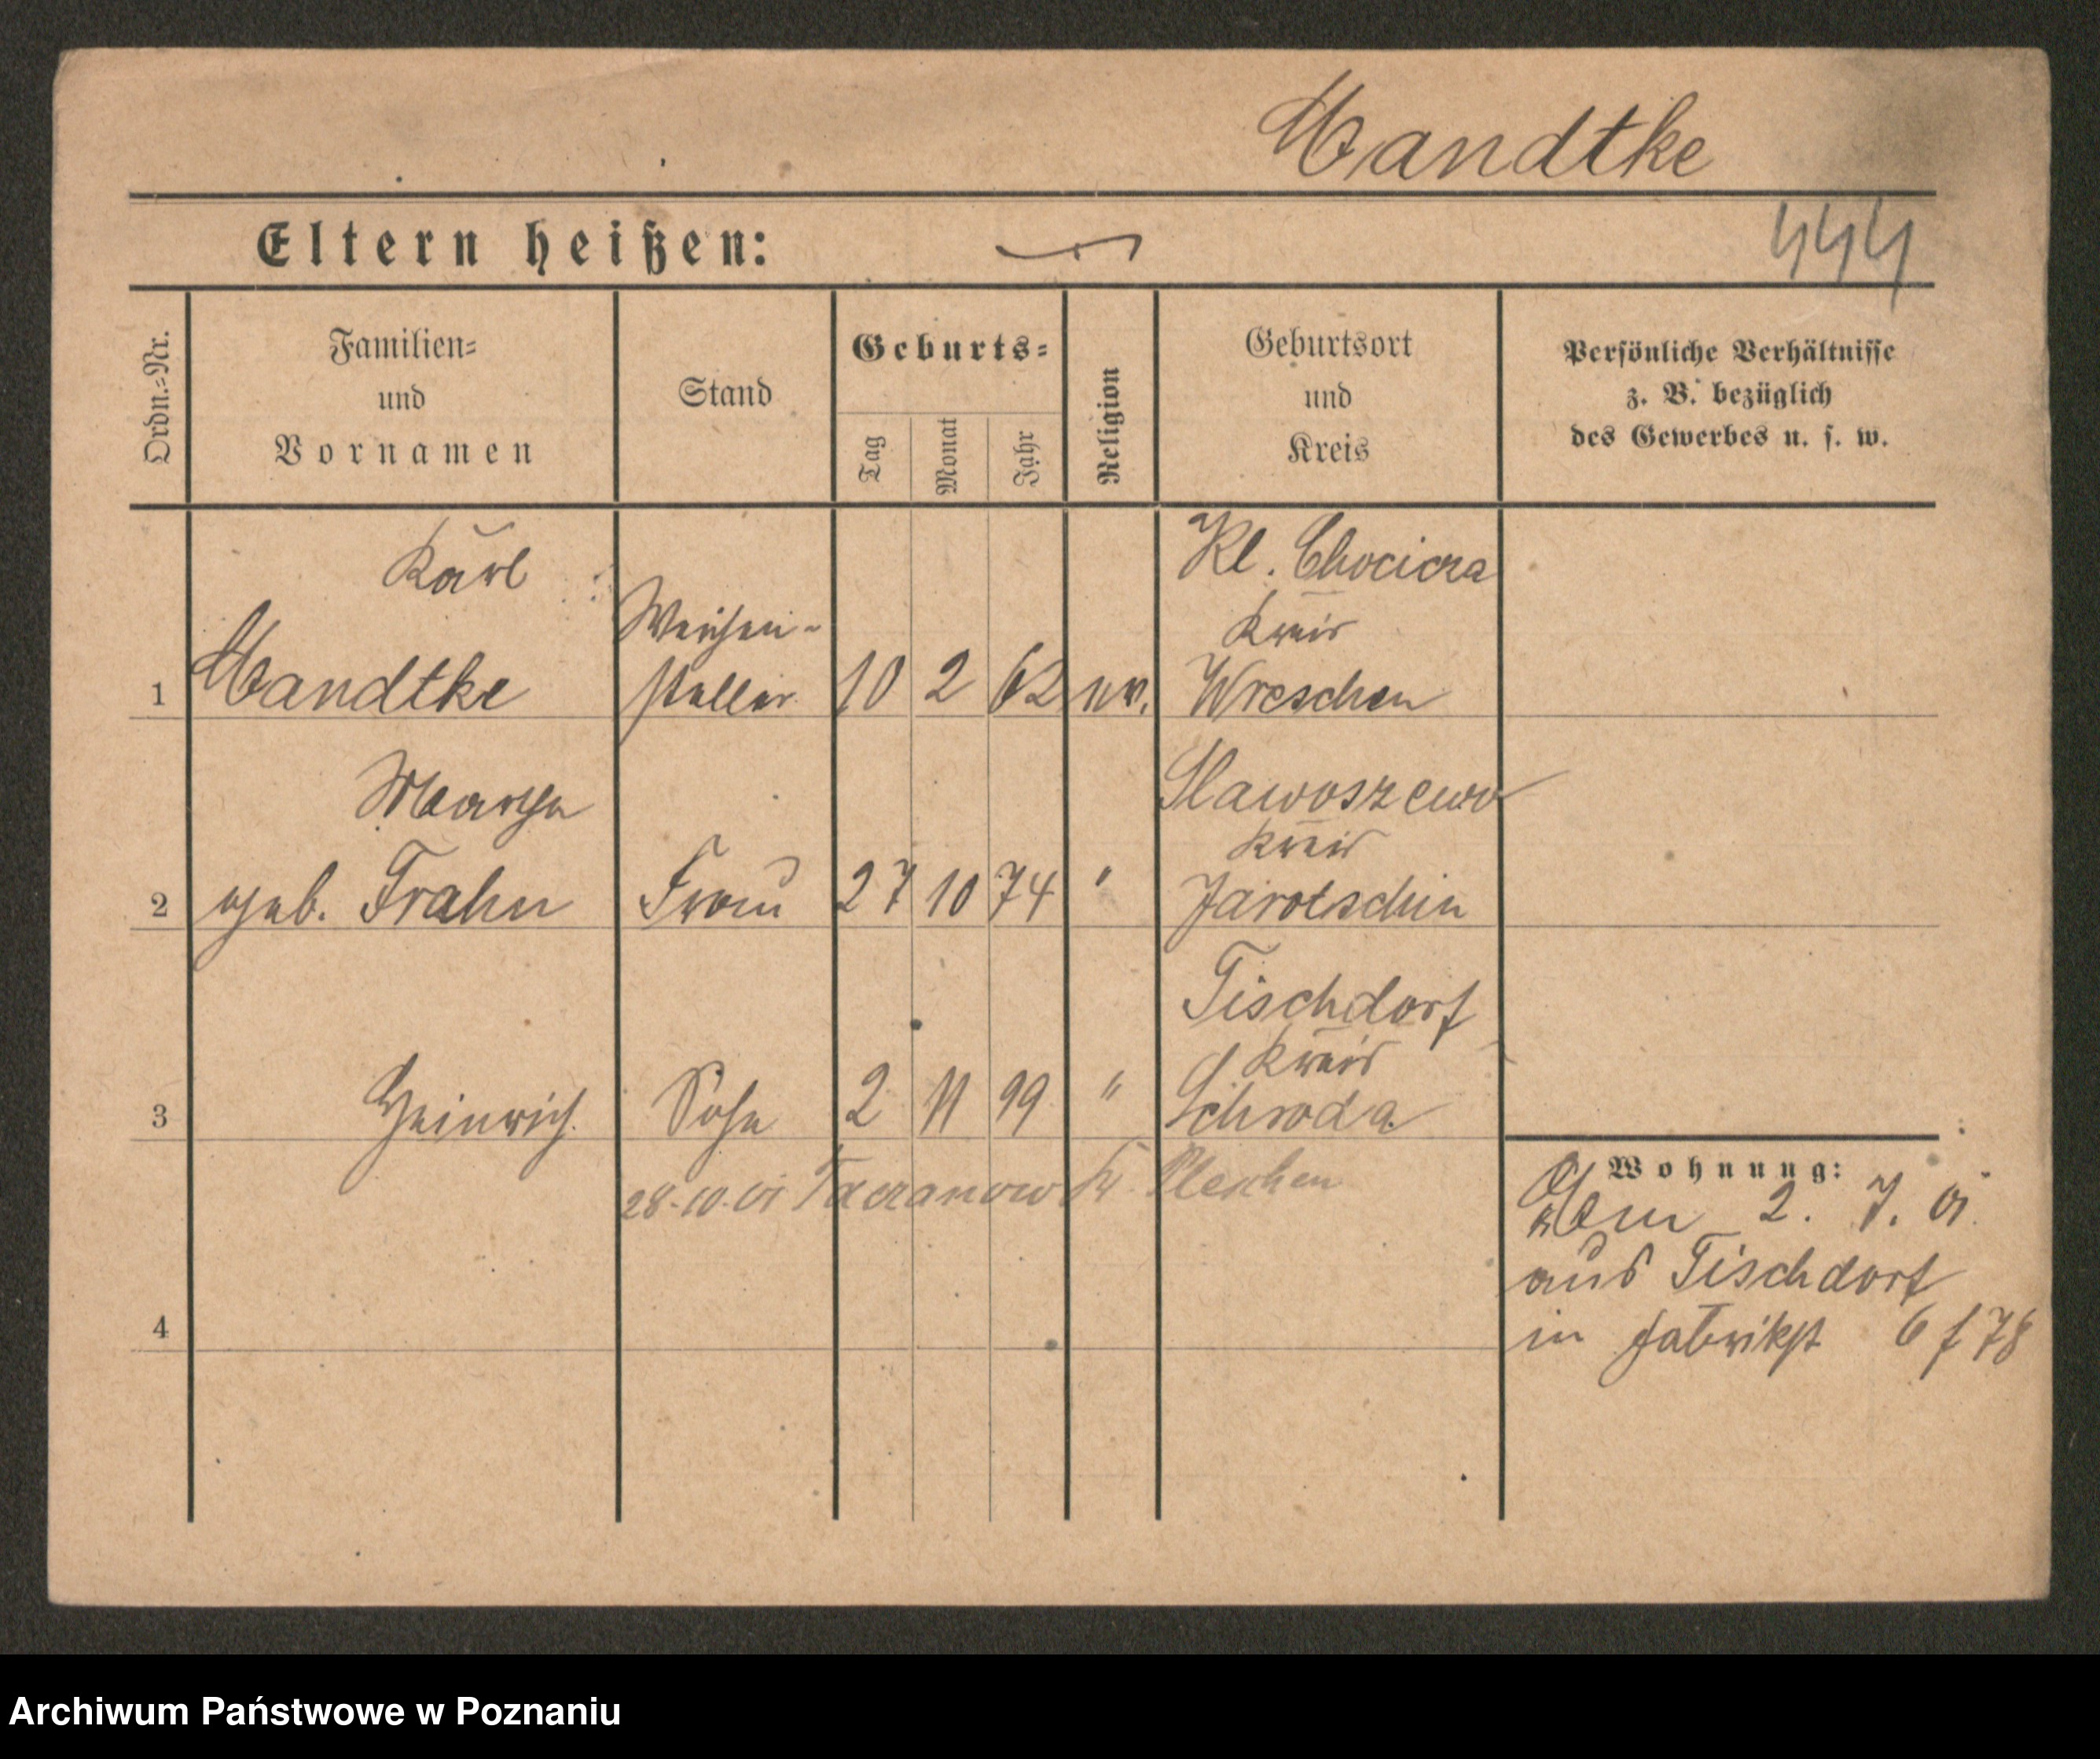 Mandtke
Eltern heißen:
444
Ordn.=Nr.
Familien=
und
Vornamen
Stand
Geburts=
Tag
Monat
Jahr
Religion
Geburtsort
und
Kreis
Persönliche Verhältnisse
z. B. bezüglich
des Gewerbes u. s. w.
Karl
Kl. Chocicza
Weichen-
Kreis
1 Mandtke steller 10 2 62 ev. Wreschen
Slawoszewo
Kreis
2 geb. Frahn Frau 27 10 74 " Jarotschin
Tischdorf
Kreis
3 Heinrich. Sohn 2 11 99 " Schroda
28.10.01 Taczanow Kr. Pleschen
4
Wohnung:
Am 2. 7. 01.
aus Tischdorf
in Fabrikst 6 f 78
Archiwum Państwowe w Poznaniu